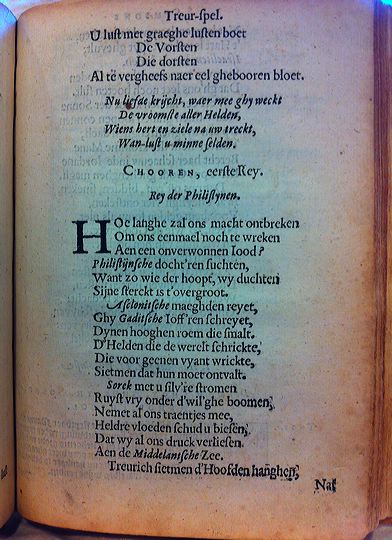 Treur-spel.
U lust met graeghe lusten boet
De Vorsten
Die dorsten
Al te vergheefs naer eel ghebooren bloet.
Nu liefde krijcht, waer mee ghy weckt
De vroomste aller Helden,
Wiens hert en ziele na uw treckt,
Wan-lust u minne selden.
CHOOREN, eerste Rey.
Rey der Philistynen.
HOe langhe zal ons macht ontbreken
Om ons eenmael noch te wreken
Aen een onverwonnen Iood?
Philistijnsche docht'ren suchten,
Want zo wie der hoopt, wy duchten
Sijne sterckt is t'overgroot.
Asclonitsche maeghden reyet,
Ghy Gaditsche Ioff'ren schreyet,
Dynen hooghen roem die smalt.
D'Helden die de werelt schrickte,
Die voor geenen vyant wrickte,
Sietmen dat hun moet ontvalt.
Sorek met u silv're stromen
Ruyst vry onder d'wil'ghe boomen,
Nemet al ons traentjes mee,
Heldre vloeden schud u biesen,
Dat wy al ons druck verliesen
Aen de Middelantsche Zee.
Treurich sietmen d'Hoofden hanghen,